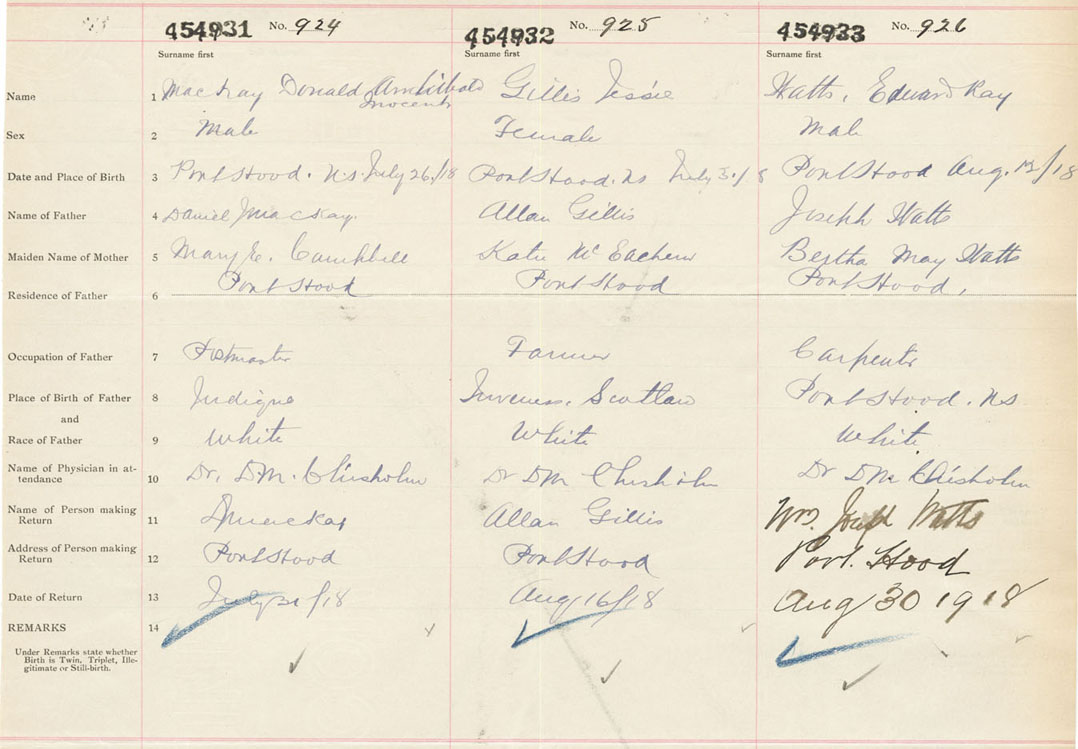 454931 No. 924 454932 No. 925 454933 No. 926
Surname first Surname first Surname first
Name 1 MacKay Donald Archibald Gillis Jessie Watts, Edward Ray
Inocent
Sex 2 Male Female Male
Date and Place of Birth 3 Port Hood. N.S. July 26/18 Port Hood. NS July 3/18 Port Hood Aug. 12/18
Name of Father 4 Daniel MacKay. Allan Gillis Joseph Watts
Maiden Name of Mother 5 Mary E. Campbell Katie McEachern Bertha May Watts
Residence of Father 6 Port Hood Port Hood Port Hood.
Occupation of Father 7 Postmaster Farmer Carpenter
Place of Birth of Father 8 Judique Inverness. Scotland Port Hood. NS
and
Race of Father 9 White White White
Name of Physician in at-
tendance 10 Dr. D.M. Chisholm Dr DM Chisholm Dr DM Chisholm
Name of Person making
Return 11 D MacKay Allan Gillis Wm. Joseph Watts
Address of Person making
Return 12 Port Hood Port Hood Port. Hood
Date of Return 13 July /18 Aug 16/18 Aug 30 1918
REMARKS 14
Under Remarks state whether
Birth is Twin, Triplet, Ille-
gitimate or Still-birth.